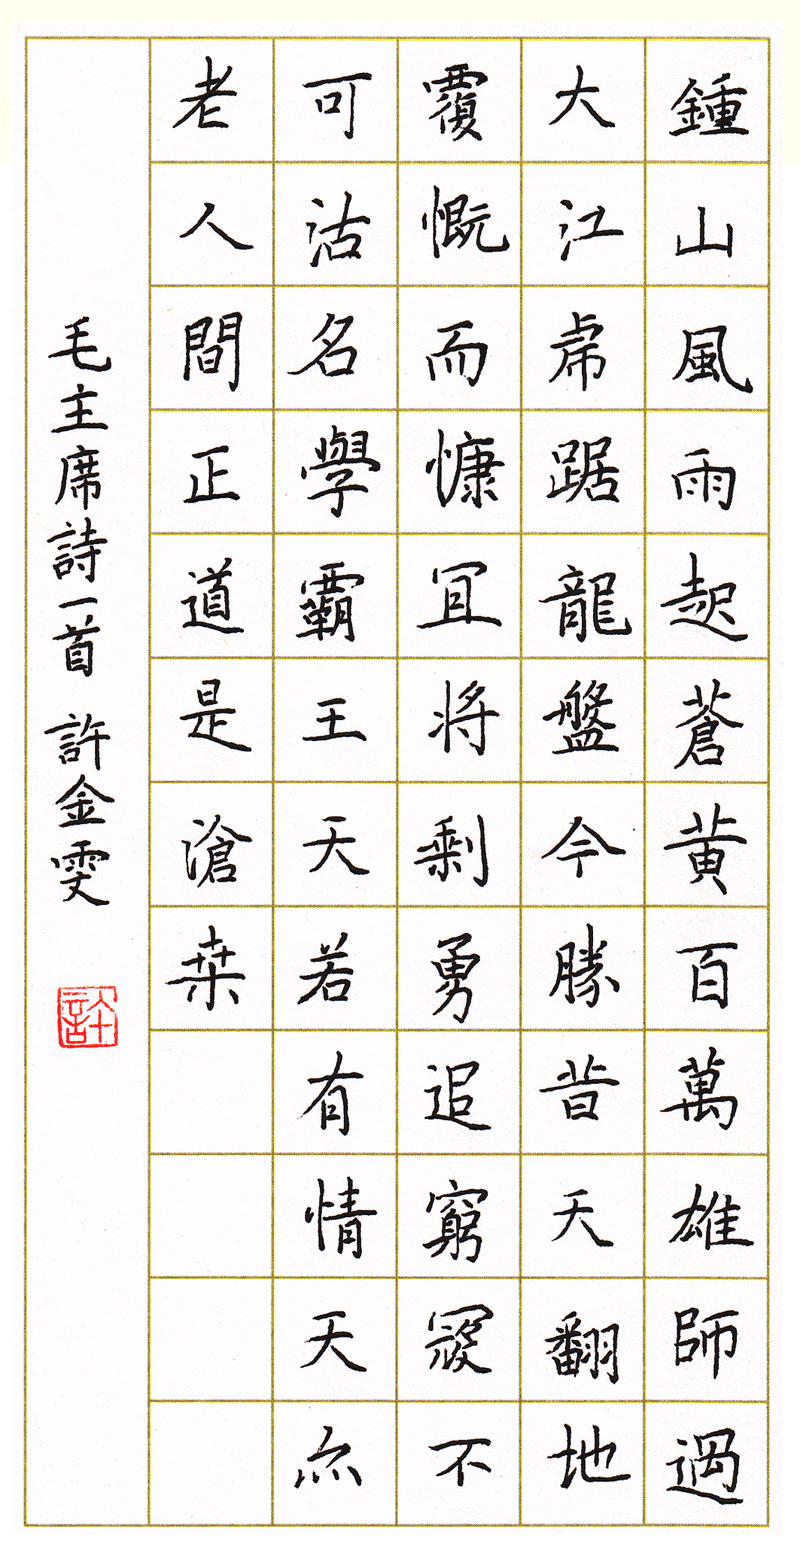 鍾山風雨起蒼黄百萬雄師過
大江虎踞龍盤今勝昔天翻地
覆慨而慷冝将剩勇追窮寇不
可沽名學霸王天若有情天亦
老人間正道是滄桒
毛主席詩一首 許金雯
許